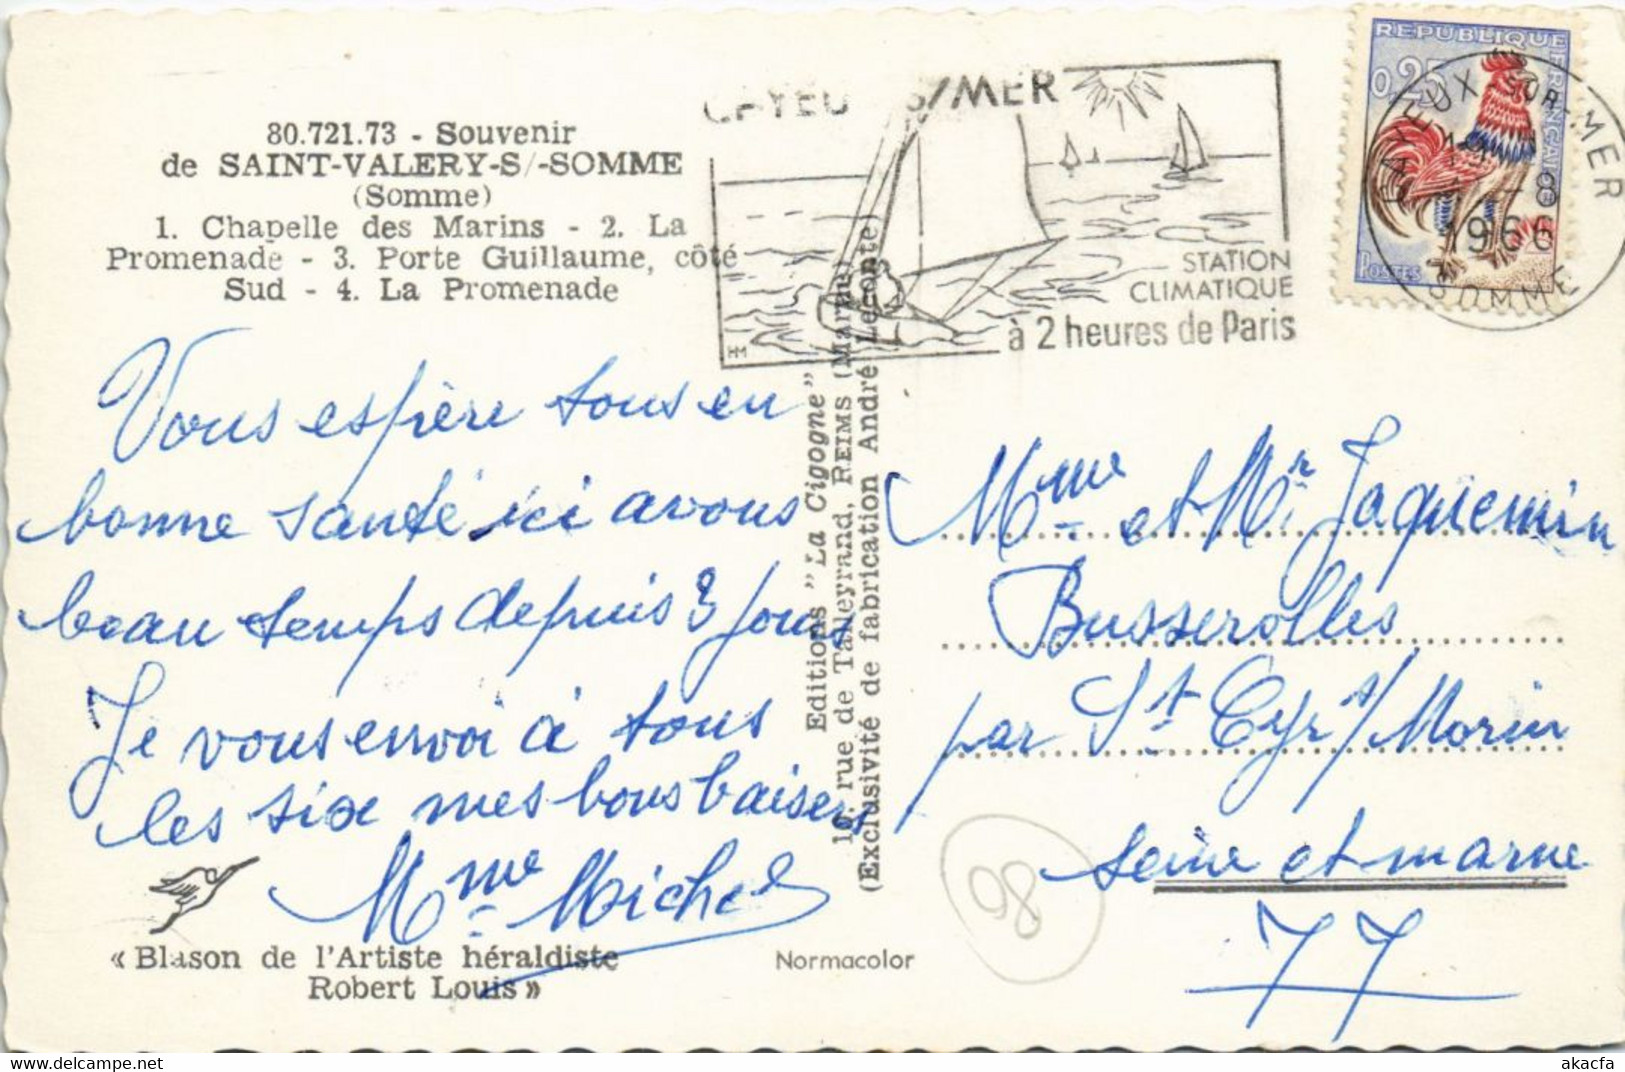 80.721.73 - Souvenir
de SAINT-VALERY-S/-SOMME
(Somme)
1. Chapelle des Marins - 2. La
Promenade - 3. Porte Guillaume, côté
Sud - 4. La Promenade
Vous espère tous en
bonne santé ici avons
beau temps depuis 3 jours
Je vous envoi à tous
les six mes bons baisers
Mme Michel
« Blason de l'Artiste héraldiste
Robert Louis »
Normacolor
Editions "La Cigogne"
rue de Talleyrand, REIMS (Marne)
(Exclusivité de fabrication André Leconte)
CAYEUX S/MER
STATION
CLIMATIQUE
à 2 heures de Paris
HM
REPUBLIQUE
FRANCAISE
0,25
POSTES
CAYEUX SUR MER
-8
1966
SOMME
Mme et Mr Jaquemin
Busserolles
par St Cyr s/Morin
Seine et marne
77
98
akacfa